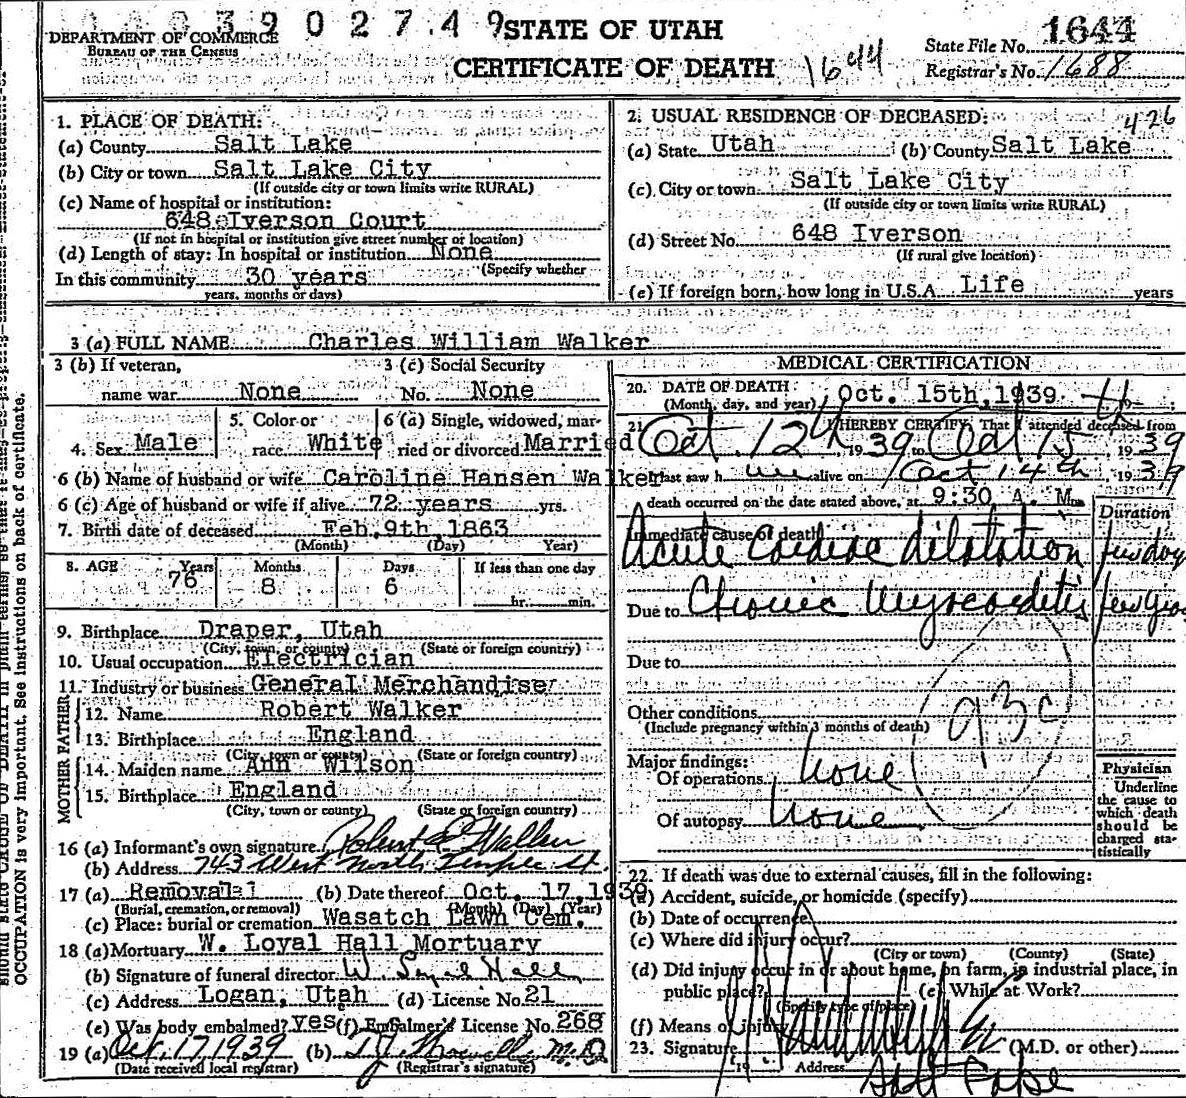 39 0 2 7 4 9
STATE OF UTAH
CERTIFICATE OF DEATH
DEPARTMENT OF COMMERCE
BUREAU OF THE CENSUS
1644
State File No. 1644
Registrar's No. 1688
1. PLACE OF DEATH:
(a) County Salt Lake
(b) City or town Salt Lake City
(If outside city or town limits write RURAL)
(c) Name of hospital or institution:
648 Iverson Court
(If not in hospital or institution give street number or location)
(d) Length of stay: In hospital or institution None
(Specify whether
In this community 30 years
years, months or days)
2. USUAL RESIDENCE OF DECEASED: 426
(a) State Utah (b) County Salt Lake
(c) City or town Salt Lake City
(If outside city or town limits write RURAL)
(d) Street No. 648 Iverson
(If rural give location)
(e) If foreign born, how long in U.S.A. Life years
3 (a) FULL NAME Charles William Walker
3 (b) If veteran, name war None
3 (c) Social Security No. None
4. Sex Male
5. Color or race White
6 (a) Single, widowed, married or divorced Married
6 (b) Name of husband or wife Caroline Hansen Walker
6 (c) Age of husband or wife if alive 72 years yrs.
7. Birth date of deceased Feb. 9th 1863
(Month) (Day) Year)
8. AGE Years 76 Months 8 Days 6 If less than one day
hr. min.
9. Birthplace Draper, Utah
(City, town, or county) (State or foreign country)
10. Usual occupation Electrician
11. Industry or business General Merchandise
FATHER
12. Name Robert Walker
13. Birthplace England
(City, town or county) (State or foreign country)
MOTHER
14. Maiden name Ann Wilson
15. Birthplace England
(City, town or county) (State or foreign country)
16 (a) Informant's own signature Robert Walker
(b) Address 743 West North Temple St.
17 (a) Removal (b) Date thereof Oct. 17, 1939
(Burial, cremation, or removal) (Month) (Day) (Year)
(c) Place: burial or cremation Wasatch Lawn Cem.
18 (a) Mortuary W. Loyal Hall Mortuary
(b) Signature of funeral director W. Loyal Hall
(c) Address Logan, Utah (d) License No. 21
(e) Was body embalmed? Yes (f) Embalmer's License No. 268
19 (a) Oct. 17, 1939 (b) M.D.
(Date received local registrar) (Registrar's signature)
MEDICAL CERTIFICATION
20. DATE OF DEATH Oct. 15th, 1939
(Month, day, and year)
21. I HEREBY CERTIFY, That I attended deceased from
Oct. 12th 1939 to Oct 15 1939
I last saw h im alive on Oct 14th, 1939
death occurred on the date stated above, at 9:30 A. M.
Duration
Immediate cause of death
Acute Cardiac dilatation few days
Due to Chronic Myocarditis few years
Due to
Other conditions
(Include pregnancy within 3 months of death)
93c
Major findings:
Of operations None
Of autopsy None
Physician
Underline the cause to which death should be charged statistically
22. If death was due to external causes, fill in the following:
(a) Accident, suicide, or homicide (specify)
(b) Date of occurrence
(c) Where did injury occur?
(City or town) (County) (State)
(d) Did injury occur in or about home, on farm, in industrial place, in
public place? (e) While at Work?
(Specify type of place)
(f) Means of injury
23. Signature (M.D. or other)
19 Address Salt Lake
OCCUPATION is very important. See instructions on back of certificate.